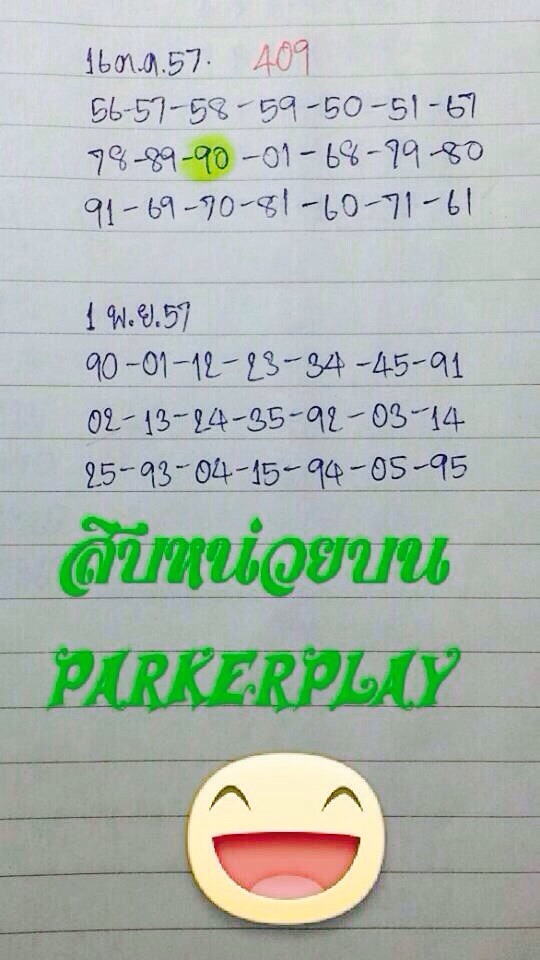 16 ต.ค.57. 409
56-57-58-59-50-51-67
78-89-90-01-68-79-80
91-69-70-81-60-71-61
1 พ.ย.57
90-01-12-23-34-45-91
02-13-24-35-92-03-14
25-93-04-15-94-05-95
สิบหน่วยบน
PARKERPLAY